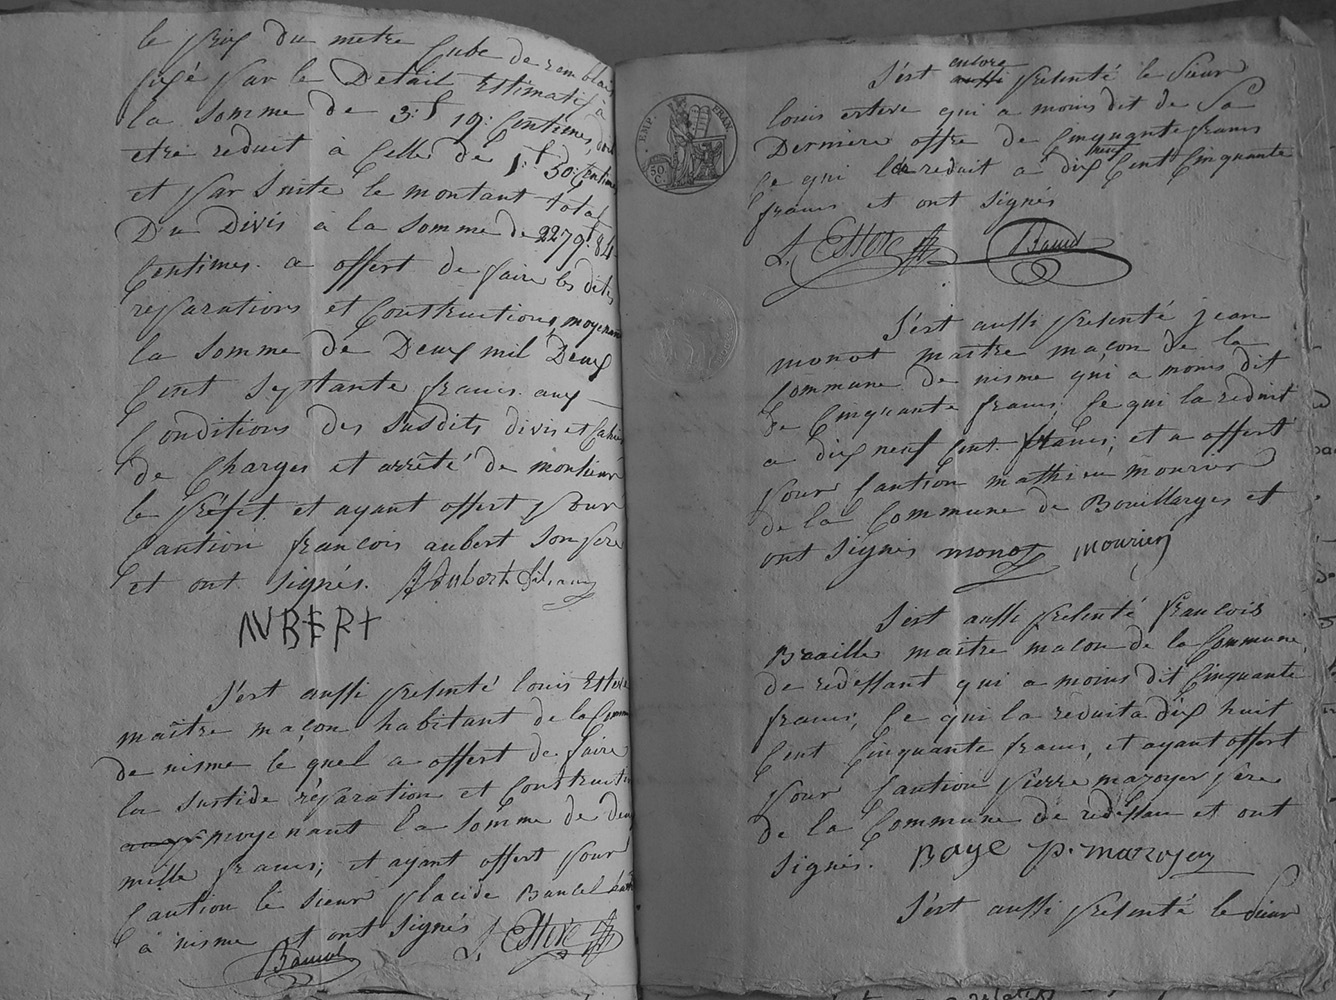 le prix du metre Cube de remblais
fixé par le Detail Estimatif à
la Somme de 3:f 19: Centimes, doit
etre reduit à Celle de 1:f 50: Centimes
et par Suite le montant total
Du Divis à la Somme de 2279f 84
Centimes. a offert de faire les dites
reparations et Constructions, moyenant
la Somme de Deux mil Deux
Cent Septante francs. aux
Conditions des Susdits divis et Cahier
de Charges et arrêté de monsieur
le préfet. et ayant offert pour
Caution francois aubert Son père
et ont Signés. Aubert fils
AVBERT
S'est aussi presenté louis Esteve
maître maçon habitant de la Commune
de nisme le quel a offert de faire
la Sustide réparation et Constructi
moyenant la Somme de deux
mille francs; et ayant offert pour
Caution le Sieur placide Bancel
à nisme et ont Signés L. Esteve
Bancel
EMP. FRAN.
50 C.
S'est encore aussi presenté le Sieur
louis esteve qui a moins dit de Sa
Derniere offre de Cinquante francs
Ce qui le reduit a dix neuf Cent Cinquante
francs et ont Signés
L. Esteve Bancel
S'est aussi presenté jean
monot maitre maçon de la
Commune de nisme qui a moins dit
de Cinquante francs; Ce qui la reduit
a dix neuf Cent francs; et a offert
pour Caution mathieu mourier
de la Commune de Bouillargues et
ont Signés monot mourier
S'est aussi presenté francois
Braaille maitre macon de la Commune,
de redessant qui a moins dit Cinquante
francs; Ce qui la reduit a dix huit
Cent Cinquante francs, et ayant offert
pour Caution pierre mazoyer père
de la Commune de redessan et ont
Signés. Baye p. mazoyer
S'est aussi presenté le Sieur